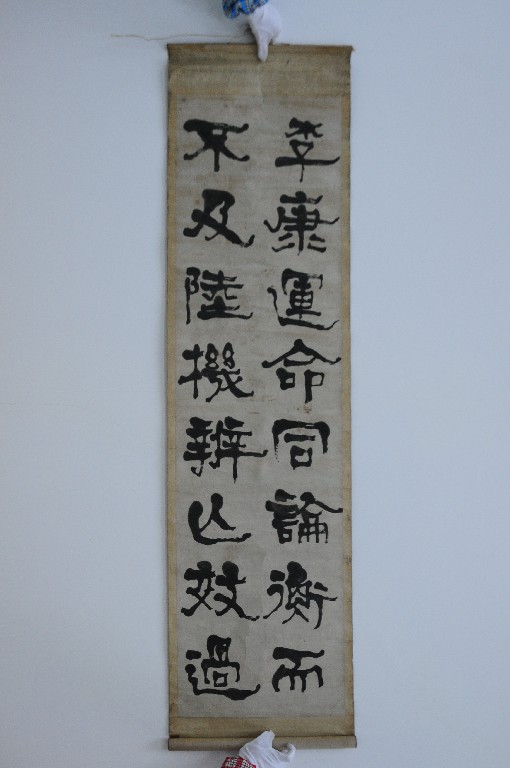 李康運命同論衡而
不及陸機辨亡效過